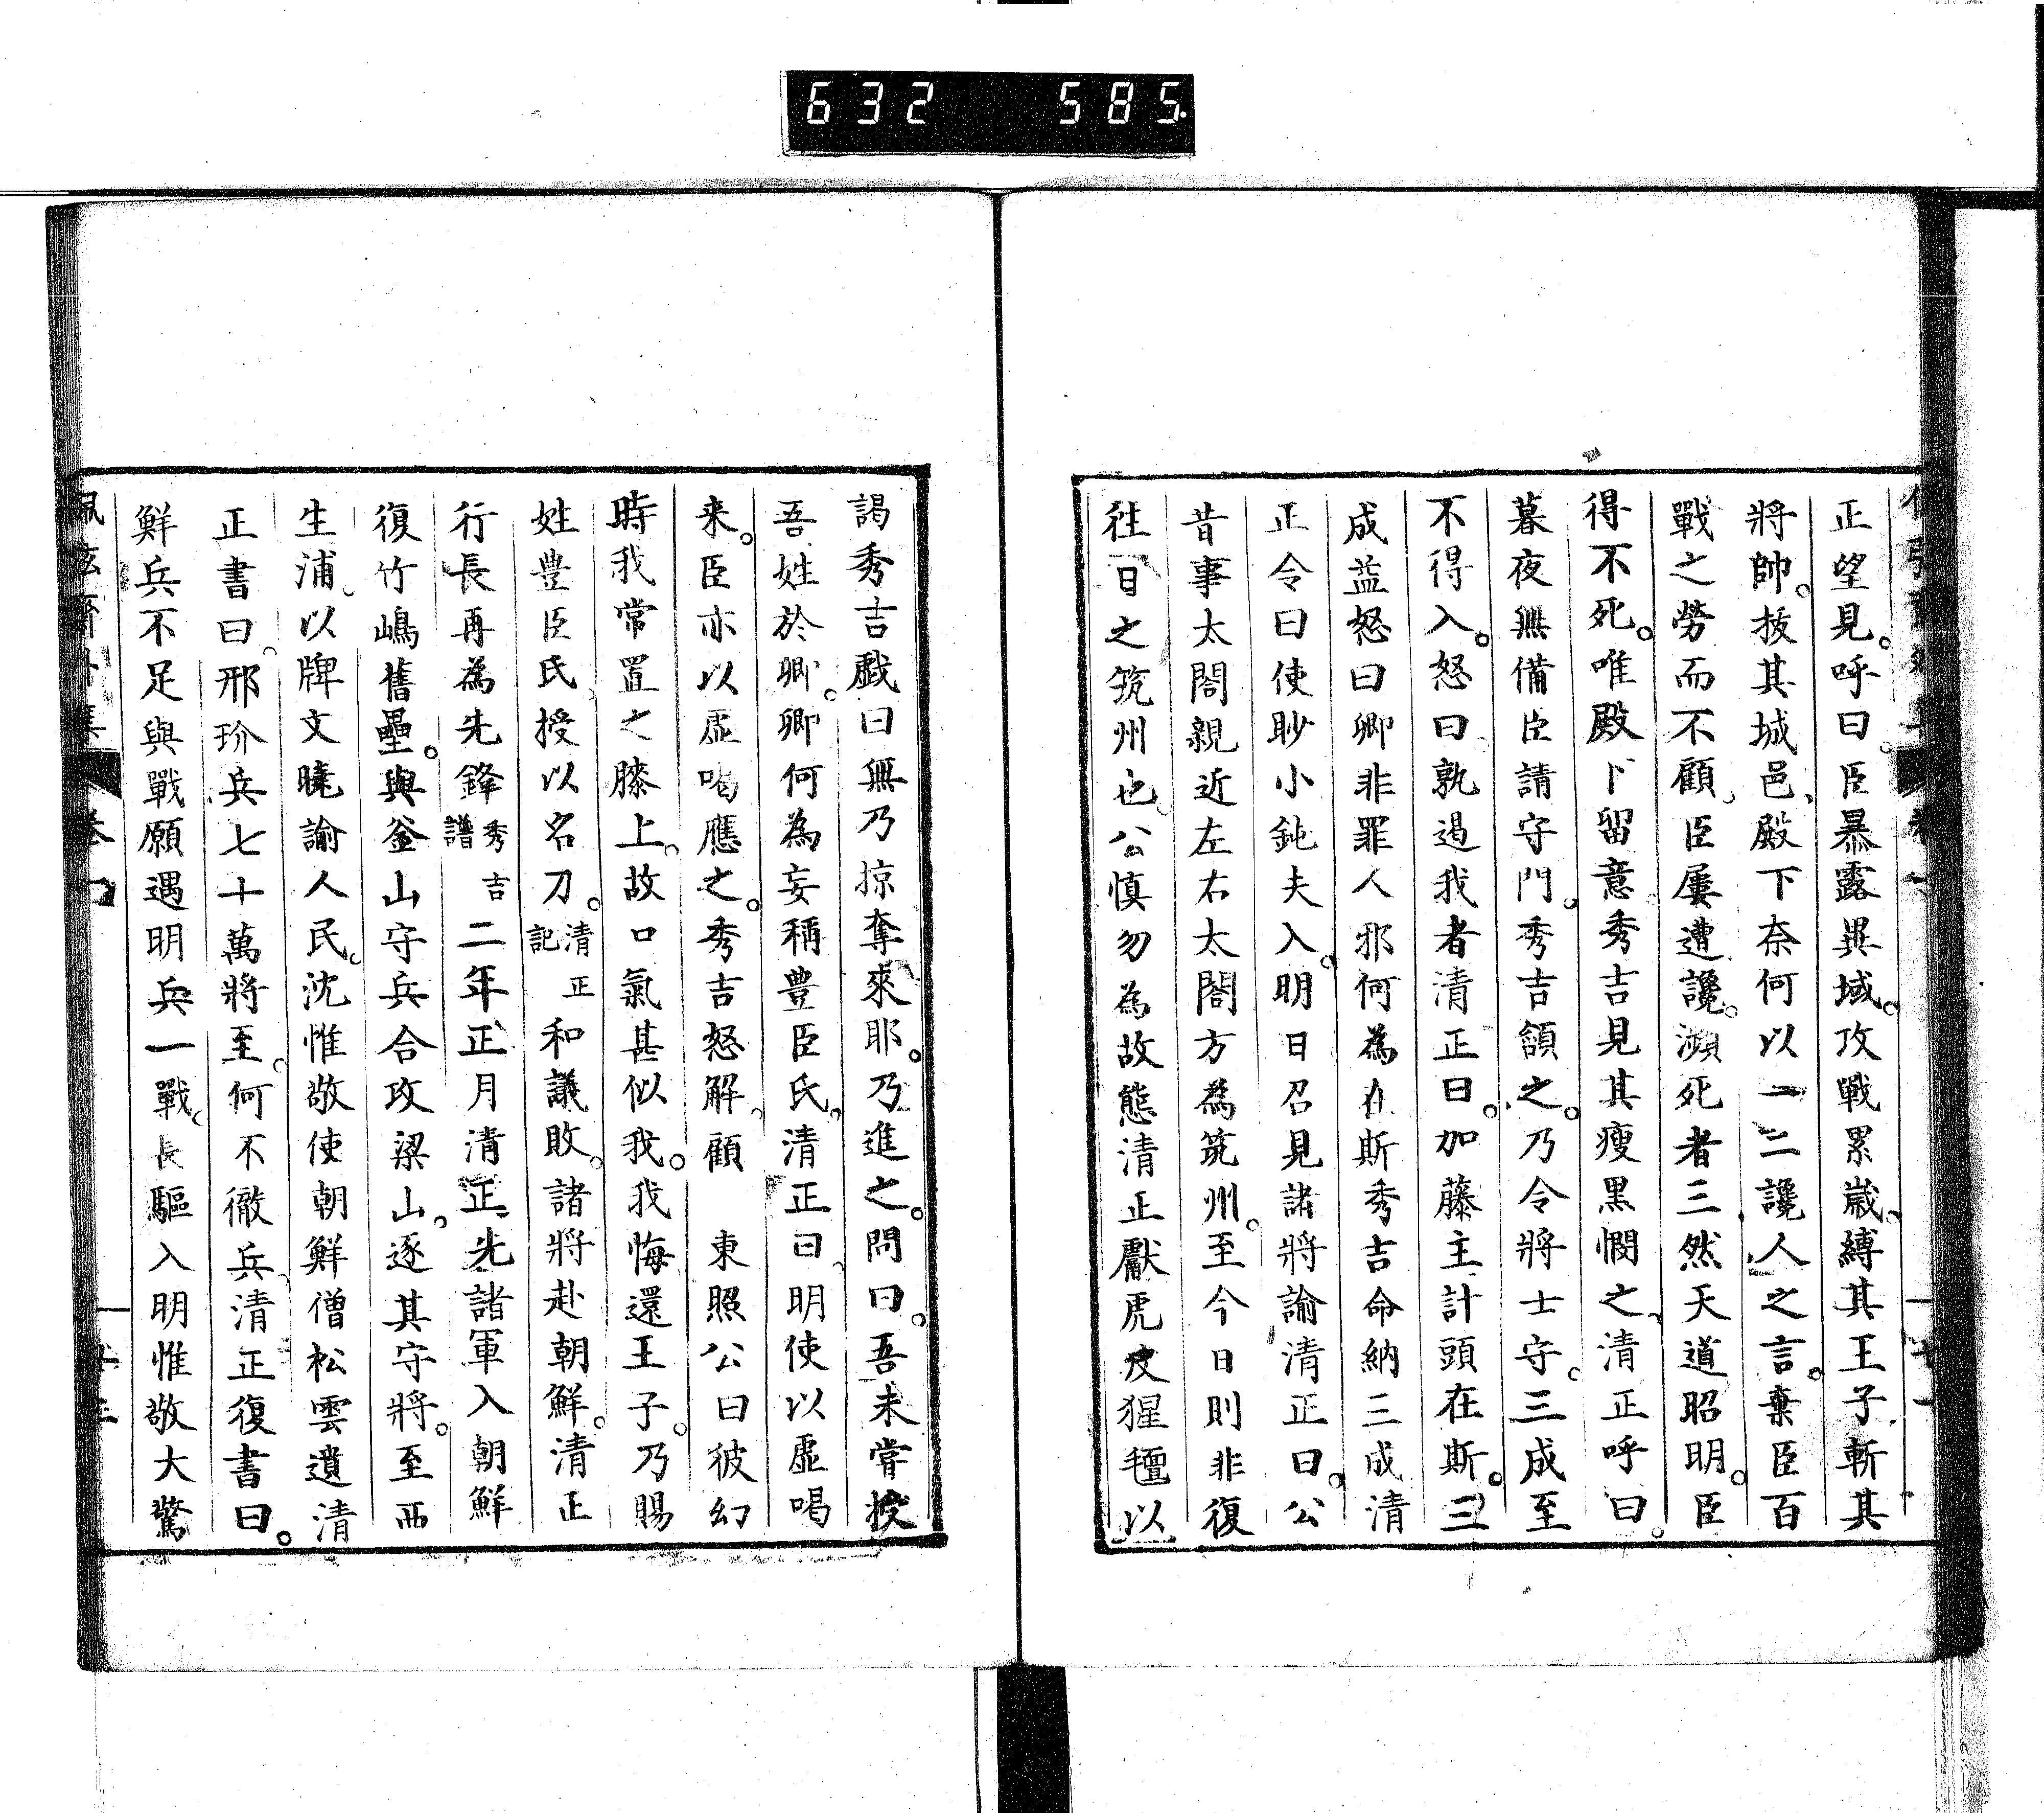 632 585
正望見。呼曰。臣暴露異域。攻戰累歲。縛其王子斬其
將帥。拔其城邑、殿下奈何以一二讒人之言。棄臣百
戰之勞而不顧、臣屢遭讒。瀕死者三然天道昭明。臣
得不死。唯殿下留意秀吉見其瘦黑憫之、清正呼曰。
暮夜無備臣請守門。秀吉頷之。乃令將士守。三成至
不得入。怒曰。孰遏我者清正曰。加藤主計頭在斯。三
成益怒曰卿非罪人邪何為在斯秀吉命納三成清
正令曰使眇小鈍夫入。明日召見諸將諭清正曰。公
昔事太閤親近左右太閤方為筑州。至今日則非復
往日之筑州也、公慎勿為故態清正獻虎皮猩氊以
謁秀吉戲曰無乃掠奪來耶。乃進之。問曰。吾未嘗授
吾姓於卿。卿何為妄稱豊臣氏、清正曰、明使以虛喝
来。臣亦以虛喝應之。秀吉怒解、顧 東照公曰彼幻
時我常置之膝上。故口氣甚似我。我悔還王子。乃賜
姓豊臣氏、授以名刀。清正記 和議敗。諸將赴朝鮮。清正
行長再為先鋒 秀吉譜 二年正月清正先諸軍入朝鮮
復竹嶋舊壘。與釜山守兵合攻梁山。逐其守將。至西
生浦、以牌文曉諭人民。沈惟敬使朝鮮僧松雲遺清
正書曰。邢玠兵七十萬將至。何不徹兵。清正復書曰。
鮮兵不足與戰願遇明兵一戰。長驅入明惟敬大驚